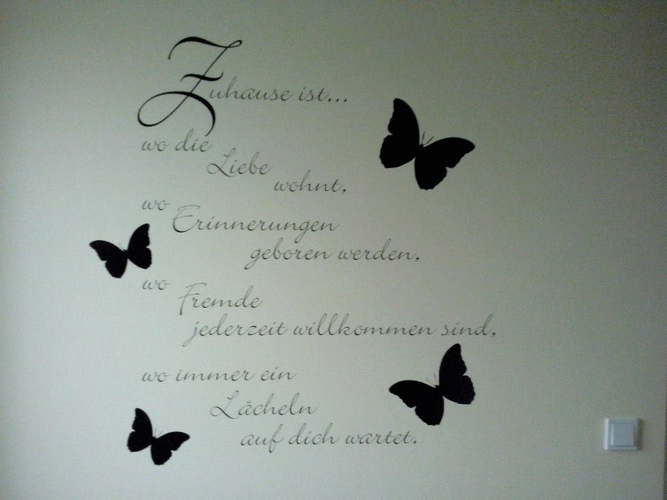 Zuhause ist...
wo die
Liebe
wohnt,
wo
Erinnerungen
geboren werden,
wo
Fremde
jederzeit willkommen sind,
wo immer ein
Lächeln
auf dich wartet.